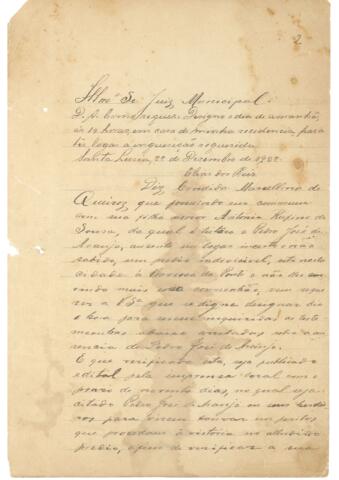 2
Illmo Sr Juiz Municipal:
D. A. Como requer. Designo o dia de amanhã,
ás 12 horas, em casa de minha residencia, para
ter logar a inquirição requerida.
Santa Luzia, 22 de Dezembro de 1922.
Diz Candido Marcellino de
Queiroz, que possuindo em commum
com sua filha menor Antonia Rufina de
Sousa, da qual é tutor e Pedro José de
Araujo, ausente em logar incerto e não
sabido, um predio indivisivel, sito nesta
cidade à do e não lhe con
vindo mais essa communhão, vem reque
rer a VSa que se digne designar dia
e hora para serem inquiridas as teste
munhas abaixo arroladas sobre a au
sencia de Pedro José de Araujo.
E que verificada esta, seja publicado
edital pela imprensa local com o
prazo de noventa dias, no qual seja
citado Pedro José de Araujo ou seus herdei
ros para virem louvar em peritos
que procedam à vistoria no alludido
predio, afim de verificar a sua